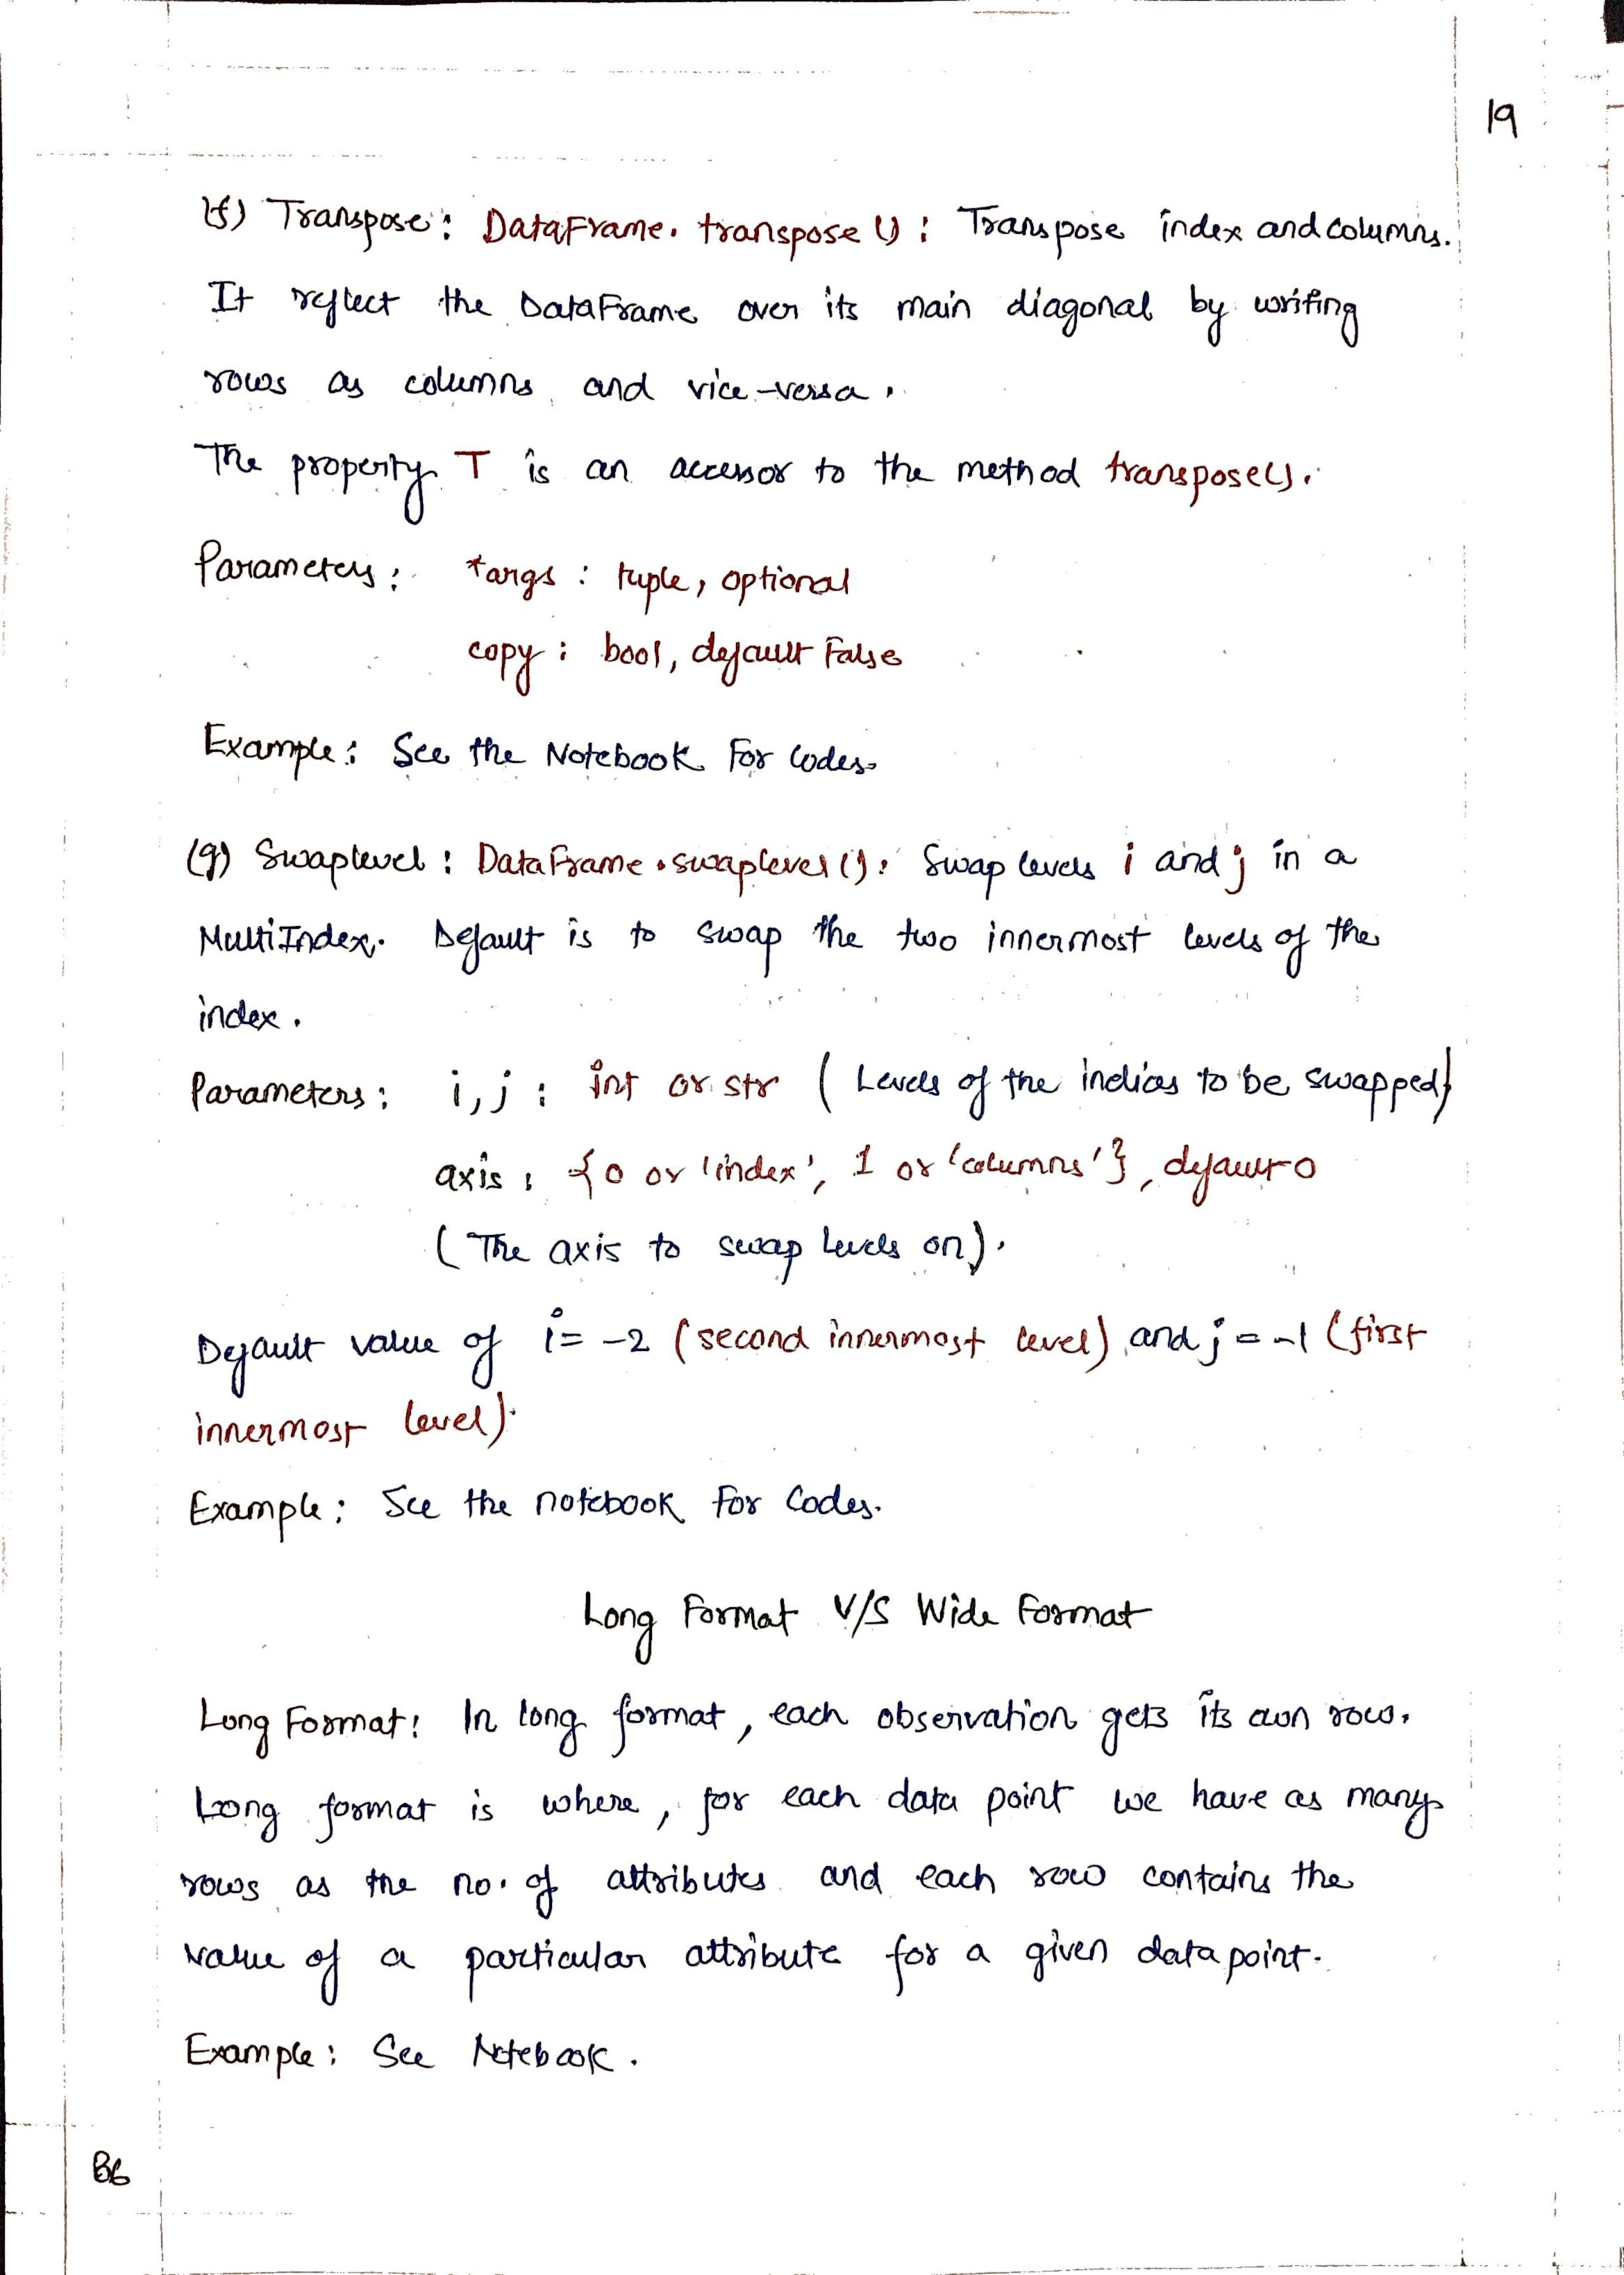 19
(f) Transpose: DataFrame.transpose(): Transpose index and columns.
It reflect the DataFrame over its main diagonal by writing
rows as columns and vice-versa.
The property T is an accessor to the method transpose().
Parameters: *args: tuple, optional
copy: bool, default False
Example: See the Notebook For Codes.
(g) Swaplevel: DataFrame.swaplevel(): Swap levels i and j in a
MultiIndex. Default is to swap the two innermost levels of the
index.
Parameters: i, j: int or str (Levels of the indices to be swapped)
axis: {0 or 'index', 1 or 'columns'}, default 0
(The axis to swap levels on).
Default value of i = -2 (second innermost level) and j = -1 (first
innermost level).
Example: See the notebook For Codes.
Long Format V/S Wide Format
Long Format: In long format, each observation gets its own row.
Long format is where, for each data point we have as many
rows as the no. of attributes and each row contains the
value of a particular attribute for a given data point.
Example: See Notebook.
BG